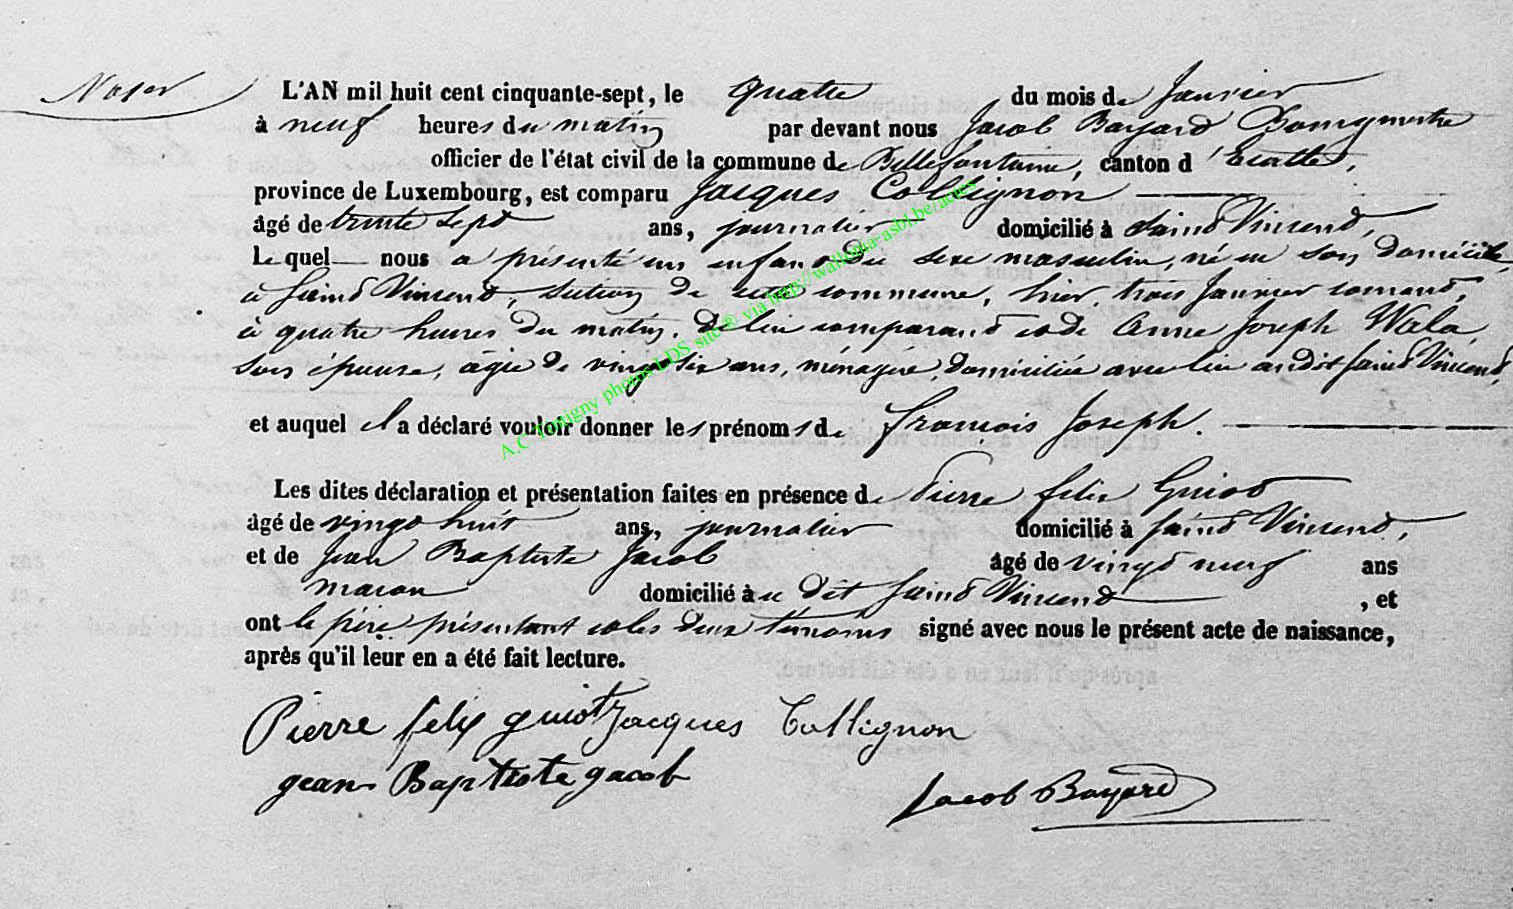 L'AN mil huit cent cinquante-sept, le quatre du mois de Janvier
à neuf heures du matin par devant nous Jacob Bayard Bourgmestre
officier de l'état civil de la commune de Bellefontaine, canton d'Etalle,
province de Luxembourg, est comparu Jacques Collignon
âgé de trente sept ans, journalier domicilié à Saint Vincent,
Le quel nous a présenté un enfant du sexe masculin, né en son domicile,
à Saint Vincent, section de cette commune, hier, trois Janvier courant,
à quatre heures du matin, de lui comparant et de Anne Joseph Wala,
son épouse, âgée de vingt six ans, ménagère, domiciliée avec lui audit Saint Vincent,
et auquel il a déclaré vouloir donner les prénoms de François Joseph.
Les dites déclaration et présentation faites en présence de Pierre felix Guiot
âgé de vingt huit ans, journalier domicilié à Saint Vincent,
et de Jean Baptiste Jacob âgé de vingt neuf ans
macon domicilié au dit Saint Vincent, et
ont le père présentant et les deux témoins signé avec nous le présent acte de naissance,
après qu'il leur en a été fait lecture.
Pierre felix guiot Jacques Collignon
jean Baptiste jacob
Jacob Bayard
A.C Tintigny photos LDS site® via http//wallonia-asbl.be/actes